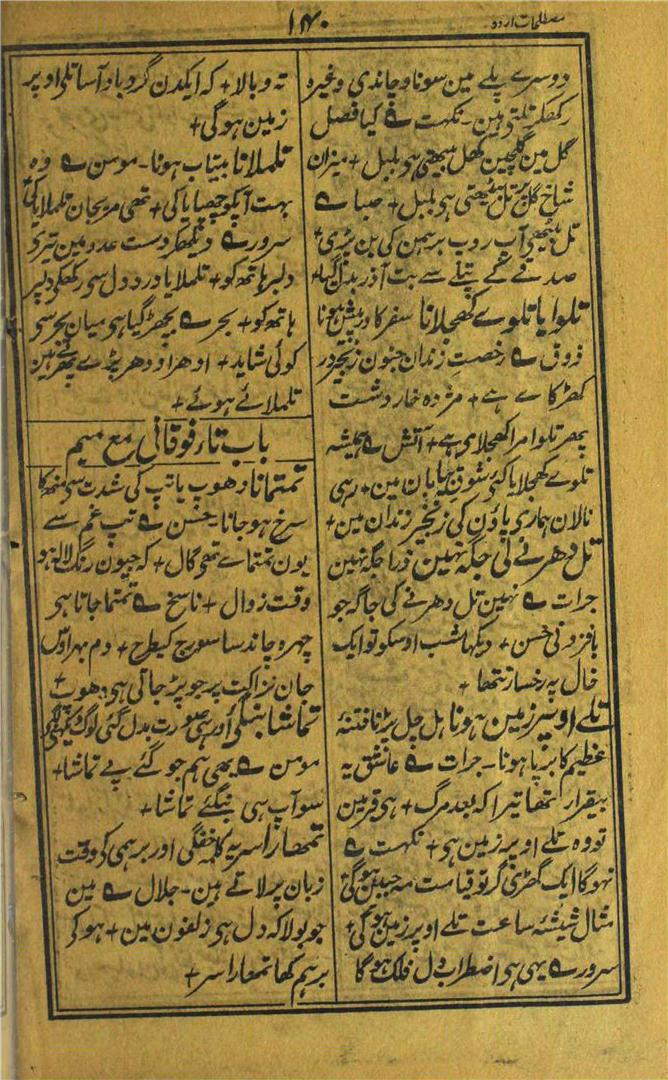 مصطلحات اردو
۱۴۰
دوسرے پلے مین سونا و چاندی وغیرہ
رکھکر تلتی ہین - نکہت ؎ کیا فصل
گل مین گلچین کھل بیٹھی ہی بلبل + میزان
شاخ گل پر تل بیٹھتی ہی بلبل + صبا ؎
تل بیٹھی آپ روپ برہمن کی بن پڑی +
صدقے کے پتلے سے بت آذر بدل گیا +
تلوا یا تلوے کھجلانا سفر کا درپیش ہونا
ذوق ؎ رخصت زندان جنون زنجیر در
کھڑکاے ہے + مژدہ خار دشت
پھر تلوا مرا کھجلاے ہے + آتش ؎ ہمیشہ
تلوے کھجلایا کئی شوق بیابان مین + رہی
نالان ہماری پاؤن کی زنجیر زندان مین +
تل دھرنے کی جگہ نہین ذرا جگہ نہین
جرات ؎ نہین تل دھرنے کی جاگہ جو
بافزونی حسن + دیکھا شب اوسکو تو ایک
خال پہ رخسار نتھا +
تلے اوپر زمین ہونا ہل چل پڑنا فتنۂ
عظیم کا برپا ہونا - جرات ؎ عاشق یہ
بیقرار تھا تیرا کہ بعد مرگ + ہی قرین
تو وہ تلے اوپر زمین ہی + نکہت ؎
نہوگا ایک گھڑی گر تو قیامت مہ جبین ہوگی
مثال شیشۂ ساعت تلے اوپر زمین ہوگی +
سرور ؎ یہی ہی اضطراب دل فلک ہوگا
تہ و بالا + کہ ایکدن گردباد آسا تلی اوپر
زمین ہوگی +
تلملانا بیتاب ہونا - مومن ؎ وہ
بہت آپکو چھپایا کی + تھی مریجان تلملایا کی
سرور ؎ دیکھکر دست عدو مین تیری
دلبر ہاتھ کو + تلملایا درد دل سی رکھکی دلپر
ہاتھ کو + بحر ؎ بچھڑ گیا ہی میان بحر سی
کوئی شاید + ادھر اودھر پڑے پھرتے ہین
تلملائے ہوئے +
باب تاء فوقانی مع میم
تمتمانا دھوپ یا تپ کی شدت سی منھ کا
سرخ ہو جانا - حسن ؎ تپ غم سے
یون تمتماے تھی گال + کہ جیون رنگ لالہ ہو
وقت زوال + ناسخ ؎ تمتما جاتا ہی
چہرہ چاند سا سورج کیطرح + دم بہر اوس
جان نزاکت پر جو پڑ جاتی ہی دھوپ +
تماشا بنگی اور ہی صورت بدل گئی لوگ دیکھنے لگی
مومن ؎ بھی ہم جو گئے پے تماشا +
سو آپ ہی بنگئے تماشا +
تمھارا سر یہ کلمہ خفگی اور برہمی کی وقت
زبان پر لاتے ہین - جلال ؎ مین
جو بولا کہ دل ہی زلفون مین + ہو کی
برہم کھا تمھارا سر +